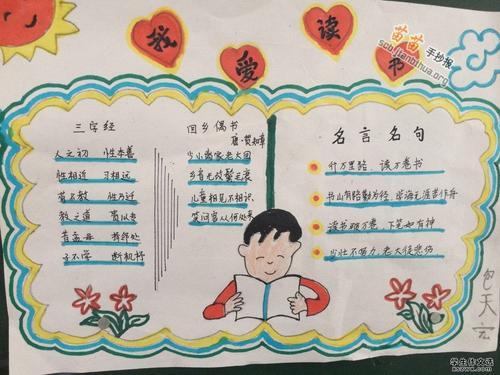 我爱读书
苗苗手抄报
scb.jianbihua.org
三字经
人之初 性本善
性相近 习相远
苟不教 性乃迁
教之道 贵以专
昔孟母 择邻处
子不学 断机杼
回乡偶书
唐·贺知章
少小离家老大回
乡音无改鬓毛衰
儿童相见不相识
笑问客从何处来
名言名句
行万里路、读万卷书
书山有路勤为径,学海无涯苦作舟
读书破万卷,下笔如有神
少壮不努力,老大徒悲伤
包天
学生作文选